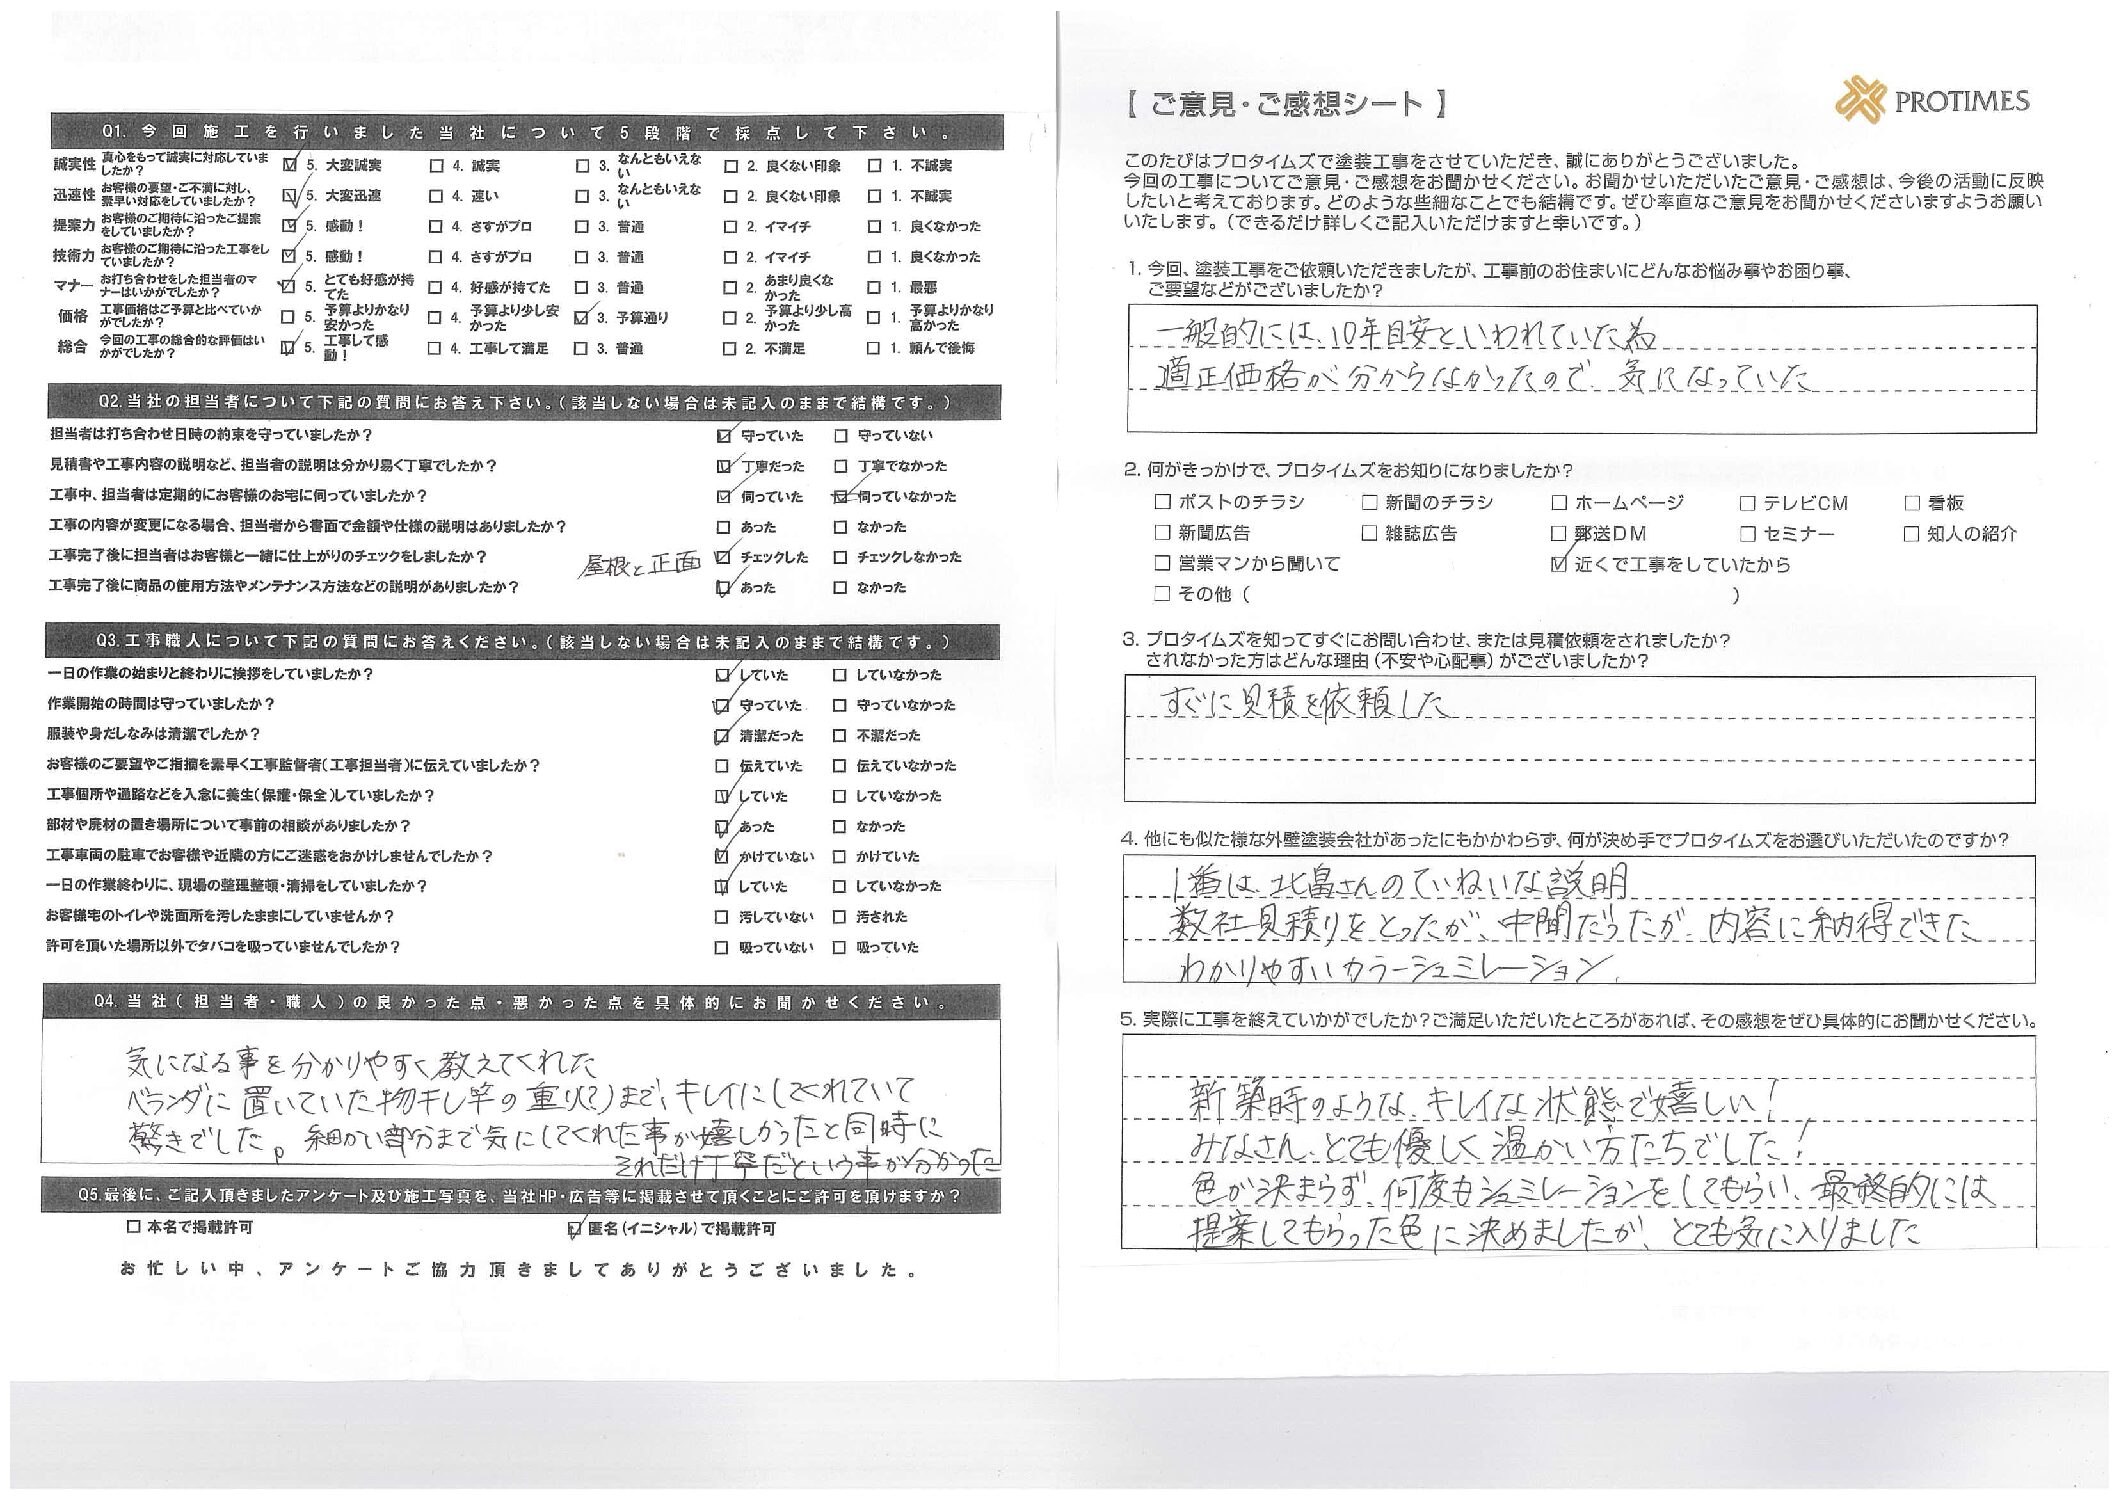 Q1. 今回施工を行いました当社について5段階で採点して下さい。
誠実性 真心をもって誠実に対応していましたか? ☑ 5. 大変誠実 □ 4. 誠実 □ 3. なんともいえない □ 2. 良くない印象 □ 1. 不誠実
迅速性 お客様の要望・ご不満に対し、素早い対応をしていましたか? ☑ 5. 大変迅速 □ 4. 速い □ 3. なんともいえない □ 2. 良くない印象 □ 1. 不誠実
提案力 お客様のご期待に沿ったご提案をしていましたか? ☑ 5. 感動! □ 4. さすがプロ □ 3. 普通 □ 2. イマイチ □ 1. 良くなかった
技術力 お客様のご期待に沿った工事をしていましたか? ☑ 5. 感動! □ 4. さすがプロ □ 3. 普通 □ 2. イマイチ □ 1. 良くなかった
マナー お打ち合わせをした担当者のマナーはいかがでしたか? ☑ 5. とても好感が持てた □ 4. 好感が持てた □ 3. 普通 □ 2. あまり良くなかった □ 1. 最悪
価格 工事価格はご予算と比べていかがでしたか? □ 5. 予算よりかなり安かった □ 4. 予算より少し安かった ☑ 3. 予算通り □ 2. 予算より少し高かった □ 1. 予算よりかなり高かった
総合 今回の工事の総合的な評価はいかがでしたか? ☑ 5. 工事して感動! □ 4. 工事して満足 □ 3. 普通 □ 2. 不満足 □ 1. 頼んで後悔
Q2. 当社の担当者について下記の質問にお答え下さい。(該当しない場合は未記入のままで結構です。)
担当者は打ち合わせ日時の約束を守っていましたか? ☑ 守っていた □ 守っていない
見積書や工事内容の説明など、担当者の説明は分かり易く丁寧でしたか? ☑ 丁寧だった □ 丁寧でなかった
工事中、担当者は定期的にお客様のお宅に伺っていましたか? ☑ 伺っていた ☑ 伺っていなかった
工事の内容が変更になる場合、担当者から書面で金額や仕様の説明はありましたか? □ あった □ なかった
工事完了後に担当者はお客様と一緒に仕上がりのチェックをしましたか? 屋根と正面 ☑ チェックした □ チェックしなかった
工事完了後に商品の使用方法やメンテナンス方法などの説明がありましたか? ☑ あった □ なかった
Q3. 工事職人について下記の質問にお答えください。(該当しない場合は未記入のままで結構です。)
一日の作業の始まりと終わりに挨拶をしていましたか? ☑ していた □ していなかった
作業開始の時間は守っていましたか? ☑ 守っていた □ 守っていなかった
服装や身だしなみは清潔でしたか? ☑ 清潔だった □ 不潔だった
お客様のご要望やご指摘を素早く工事監督者(工事担当者)に伝えていましたか? □ 伝えていた □ 伝えていなかった
工事個所や通路などを入念に養生(保護・保全)していましたか? ☑ していた □ していなかった
部材や廃材の置き場所について事前の相談がありましたか? ☑ あった □ なかった
工事車両の駐車でお客様や近隣の方にご迷惑をおかけしませんでしたか? ☑ かけていない □ かけていた
一日の作業終わりに、現場の整理整頓・清掃をしていましたか? ☑ していた □ していなかった
お客様宅のトイレや洗面所を汚したままにしていませんか? □ 汚していない □ 汚された
許可を頂いた場所以外でタバコを吸っていませんでしたか? □ 吸っていない □ 吸っていた
Q4. 当社(担当者・職人)の良かった点・悪かった点を具体的にお聞かせください。
気になる事を分かりやすく教えてくれた
ベランダに置いていた物干し竿の重り(?)まで、キレイにしてくれていて
驚きでした。細かい部分まで気にしてくれた事が嬉しかったと同時に
それだけ丁寧だという事が分かった
Q5. 最後に、ご記入頂きましたアンケート及び施工写真を、当社HP・広告等に掲載させて頂くことにご許可を頂けますか?
□ 本名で掲載許可 ☑ 匿名(イニシャル)で掲載許可
お忙しい中、アンケートご協力頂きましてありがとうございました。
【ご意見・ご感想シート】
PROTIMES
このたびはプロタイムズで塗装工事をさせていただき、誠にありがとうございました。
今回の工事についてご意見・ご感想をお聞かせください。お聞かせいただいたご意見・ご感想は、今後の活動に反映
したいと考えております。どのような些細なことでも結構です。ぜひ率直なご意見をお聞かせくださいますようお願い
いたします。(できるだけ詳しくご記入いただけますと幸いです。)
1. 今回、塗装工事をご依頼いただきましたが、工事前のお住まいにどんなお悩み事やお困り事、
ご要望などがございましたか?
一般的には、10年目安といわれていた為
適正価格が分からなかったので、気になっていた
2. 何がきっかけで、プロタイムズをお知りになりましたか?
□ ポストのチラシ □ 新聞のチラシ □ ホームページ □ テレビCM □ 看板
□ 新聞広告 □ 雑誌広告 □ 郵送DM □ セミナー □ 知人の紹介
□ 営業マンから聞いて ☑ 近くで工事をしていたから
□ その他( )
3. プロタイムズを知ってすぐにお問い合わせ、または見積依頼をされましたか?
されなかった方はどんな理由(不安や心配事)がございましたか?
すぐに見積を依頼した
4. 他にも似た様な外壁塗装会社があったにもかかわらず、何が決め手でプロタイムズをお選びいただいたのですか?
1番は、北畠さんのていねいな説明
数社見積りをとったが、中間だったが、内容に納得できた
わかりやすいカラーシュミレーション
5. 実際に工事を終えていかがでしたか?ご満足いただいたところがあれば、その感想をぜひ具体的にお聞かせください。
新築時のような、キレイな状態で嬉しい!
みなさん、とても優しく温かい方たちでした!
色が決まらず、何度もシュミレーションをしてもらい、最終的には
提案してもらった色に決めましたが、とても気に入りました